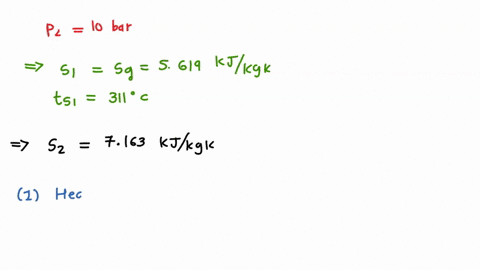 P2 = 10 bar
=> S1 = Sg = 5.619 kJ/kgk
tS1 = 311°c
=> S2 = 7.163 kJ/kgk
(1) Hec